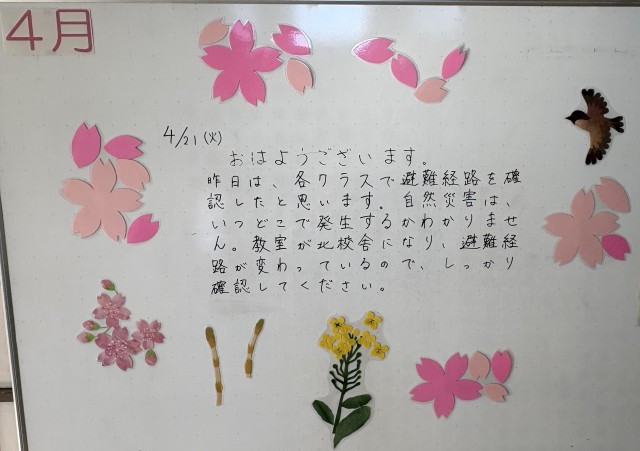 4月
4/21(火)
おはようございます。
昨日は、各クラスで避難経路を確
認したと思います。自然災害は、
いつどこで発生するかわかりませ
ん。教室が北校舎になり、避難経
路が変わっているので、しっかり
確認してください。